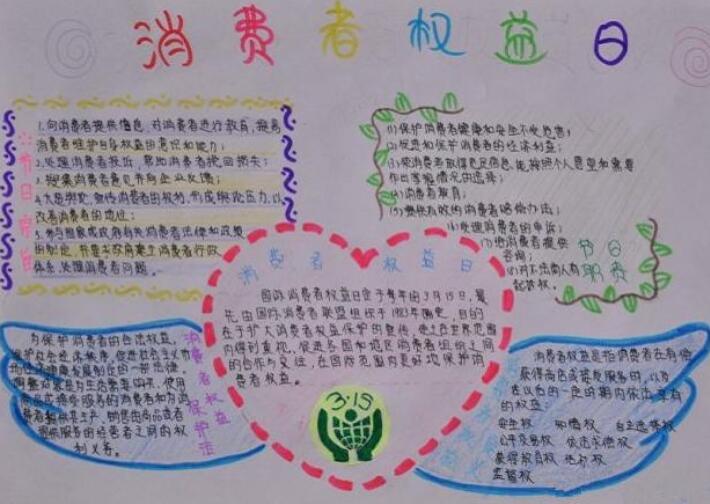 消费者权益日
1.向消费者提供信息,对消费者进行教育,提高
消费者维护自身权益的意识和能力;
2.处理消费者投诉,帮助消费者挽回损失;
3.搜集消费者意见并向企业反馈;
4.大造舆论,宣传消费者的权利,形成舆论压力,以
改善消费者的地位;
5.参与国家或政府有关消费者法律和政策
的制定,并要求政府建立消费者行政
体系,处理消费者问题。
节日宗旨
(1)保护消费者健康和安全不受危害;
(2)促进和保护消费者的经济利益;
(3)使消费者取得充足信息,能按照个人愿望和需要
作出掌握情况的选择;
(4)消费者教育;
(5)提供有效的消费者赔偿办法;
(6)受理消费者的申诉;
(7)给消费者提供
咨询;
(8)对不法商人有
起诉权。
节日
职责
消费者权益日
国际消费者权益日定于每年的3月15日,最
先由国际消费者联盟组织于1983年确定,目的
在于扩大消费者权益保护的宣传,使之在世界范围
内得到重视,促进各国和地区消费者组织之间
的合作与交往,在国际范围内更好地保护消
费者权益。
3·15
为保护消费者的合法权益,
保护社会经济秩序,促进社会主义市
场经济健康发展制定的一部法律。
调整对象是为生活需要购买、使用
商品或接受服务的消费者和为消
费者提供其生产、销售的商品或者
提供服务的经营者之间的权
利义务。
消费者权益保护法
消费者权益是指消费者在有偿
获得商品或接受服务时,以及
在以后的一定时期内依法享有
的权益:
安全权 知情权 自主选择权
公平交易权 依法求偿权
获得教育权 结社权
监督权